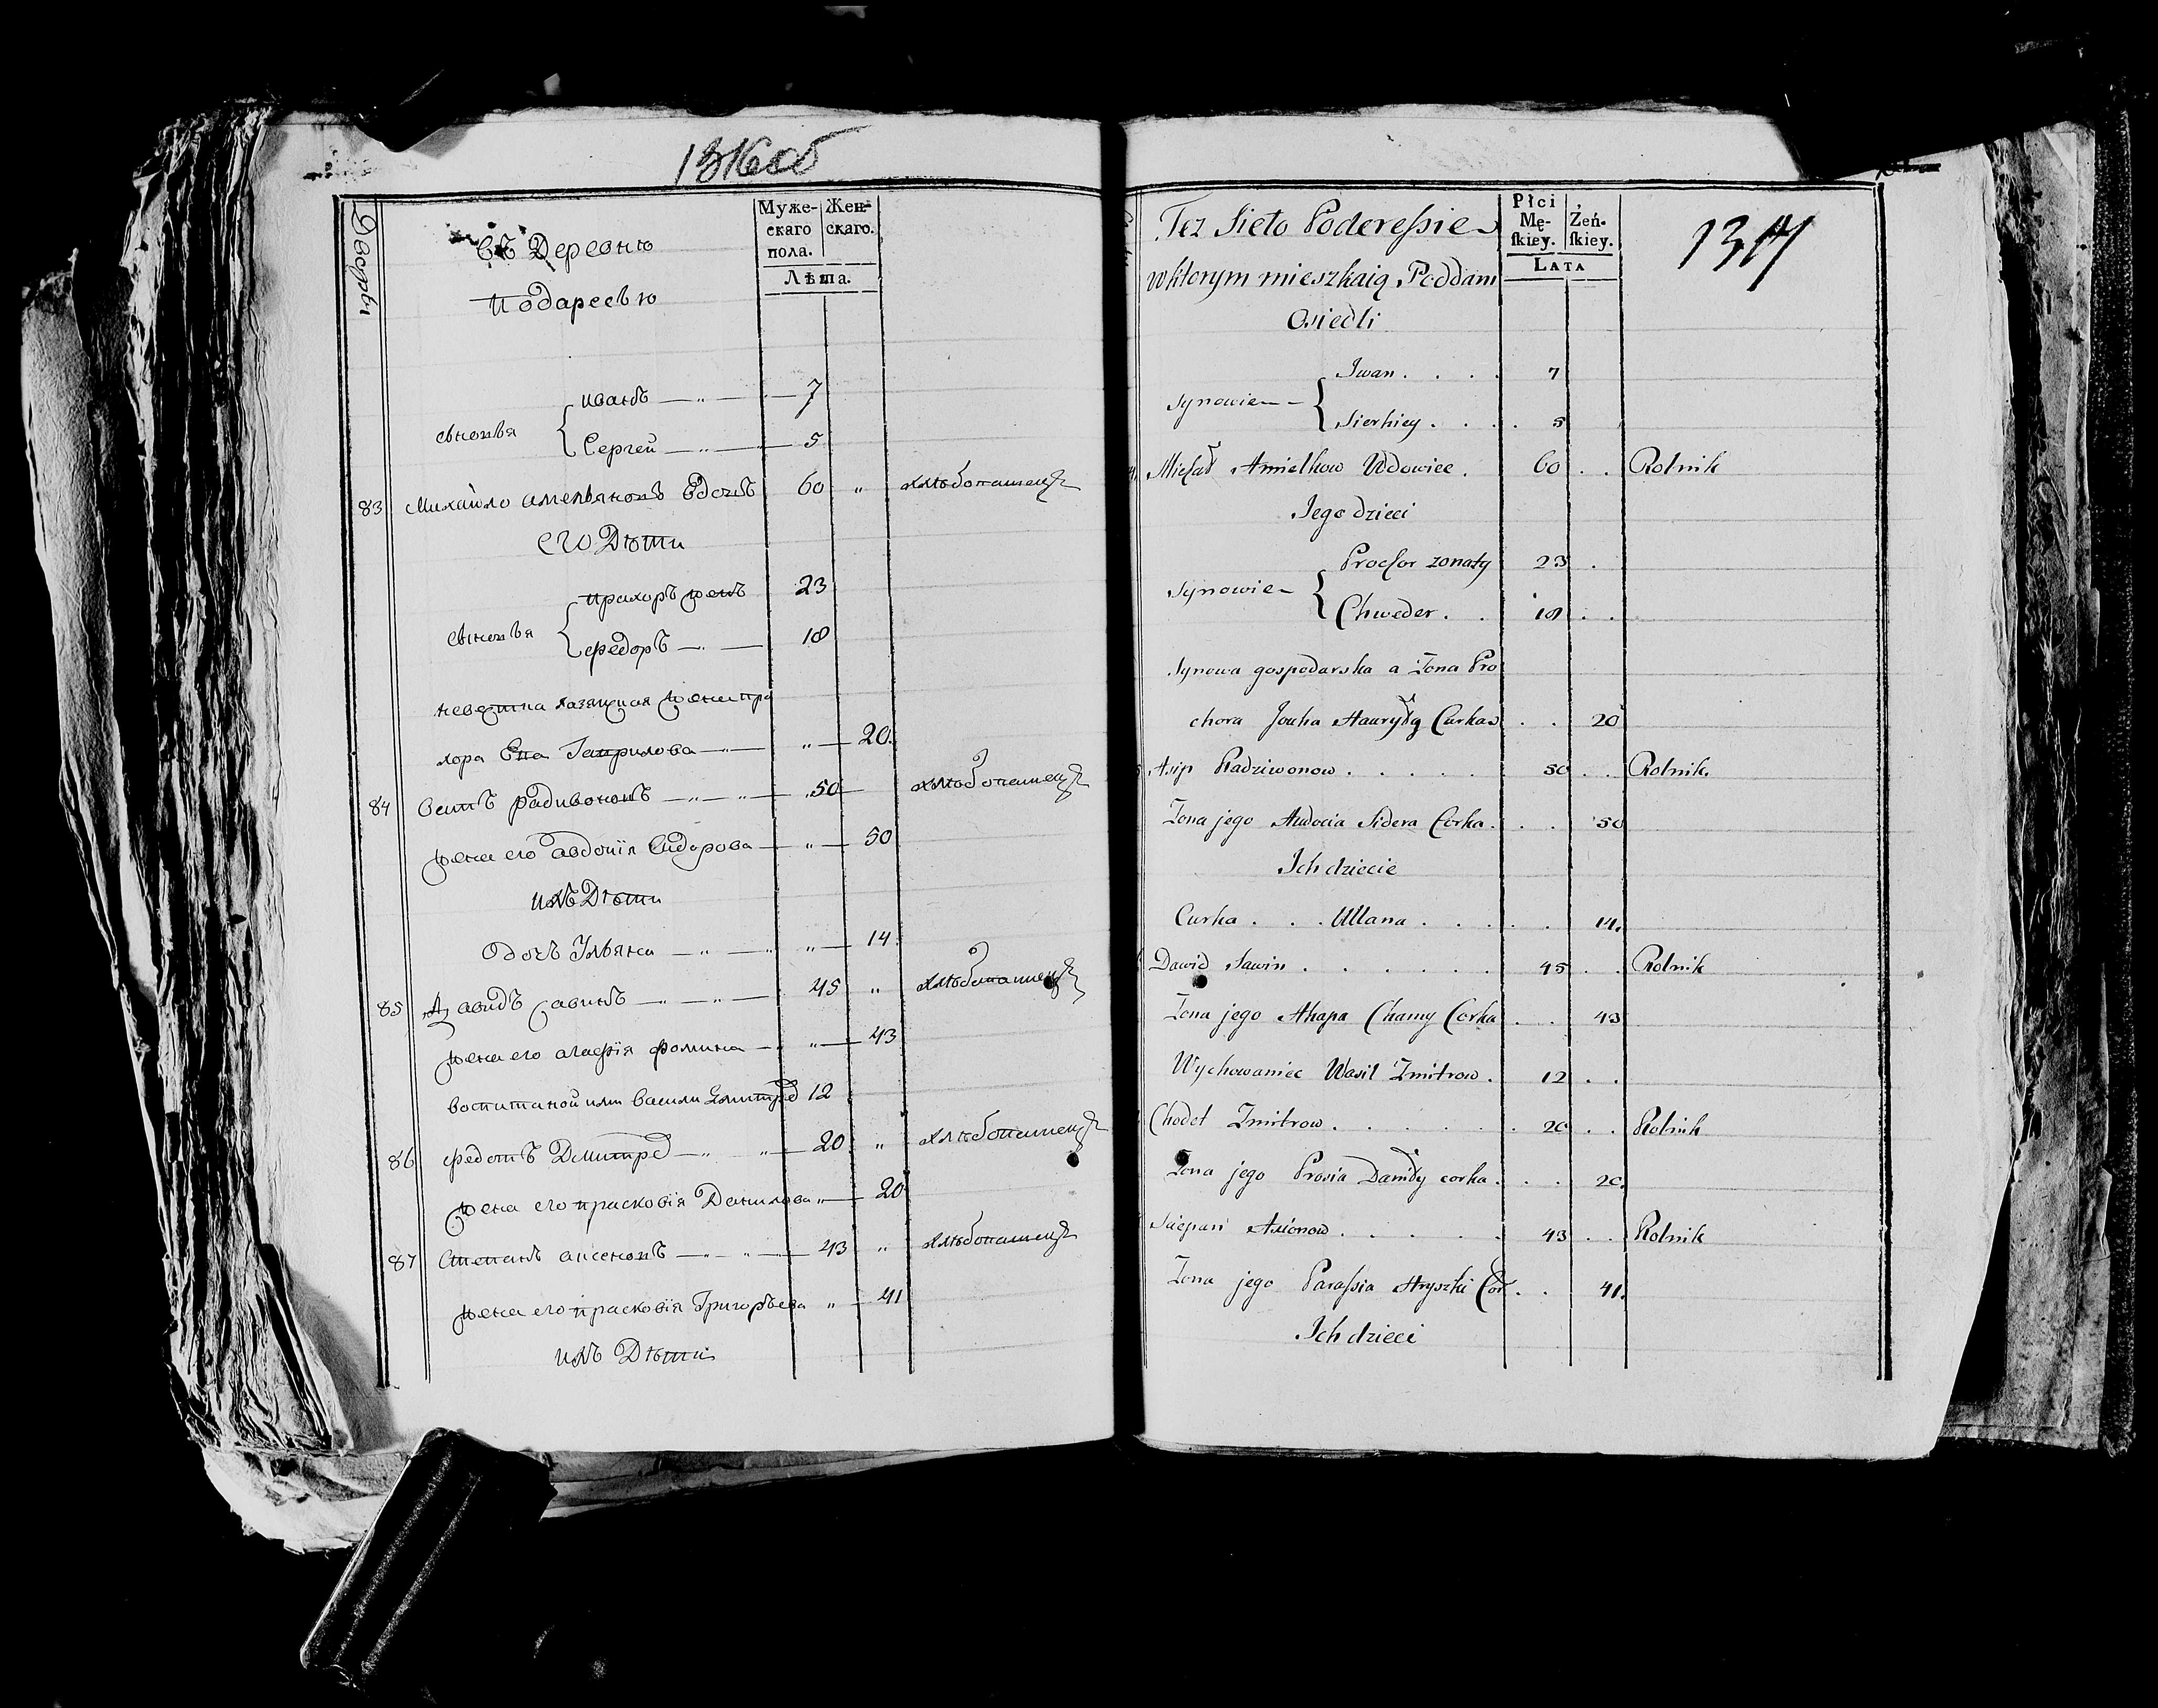 1316об
Дворы
въ Деревню
подареевью
Муже-
скаго
пола.
Жен-
скаго.
Лѣта.
сыновья
иванъ 7
Сергей 5
83 Михайло амельяновъ вдовъ 60 " хлѣбопашецъ
его Дѣти
сыновья
прахоръ женъ 23
федоръ 18
невестка хазяиская жена пра
хора Гаврилова " 20.
84 Осипъ радивоновъ 50 хлѣбопашецъ
жена его авдотія Сидорова " 50
ихъ Дѣти
Дочь Ульяна " 14.
85 Давидъ Савинъ 45 " хлѣбопашецъ
жена его агафія фомина " 43
воспитаной ими василий 12
86 федотъ 20 " хлѣбопашецъ
жена его прасковія Данилова " 20
87 Степанъ аксеновъ 43 " хлѣбопашецъ
жена его прасковія Григорьева " 41
ихъ Дѣти
Też Sieło Poderessie
w którym mieszkaią Poddani
Osiedli
Płci
Mę-
skiey.
Żeń-
skiey.
Lata
1317
Synowie
Iwan . . . . 7
Sierhiey . . . . 5
Michał Amielkow Wdowiec . 60 . . Rolnik
Jego dzieci
Synowie
Prochor żonaty 23 .
Chweder . . 18 . .
Synowa gospodarska a Żona Pro
chora Hauryły Curka . . 20
Asip Radziwonow . . . . . 50 . . Rolnik.
Żona jego Audocia Sidera Corka . . . 50
Ich dziecie
Curka . . . Ullana . . . . . 14.
Dawid Sawin . . . . . . 45 . . Rolnik
Żona jego Ahapa Chamy Corka . . 43
Wychowaniec Wasil Zmitrow . 12 . .
Chodot Zmitrow . . . . . . 20 . . Rolnik
Żona jego Prosia Daniły corka . . . 20.
Sciepan Axionow . . . . . . 43 . . Rolnik
Żona jego Parassia Hryszki Cor . . 41.
Ich dzieci